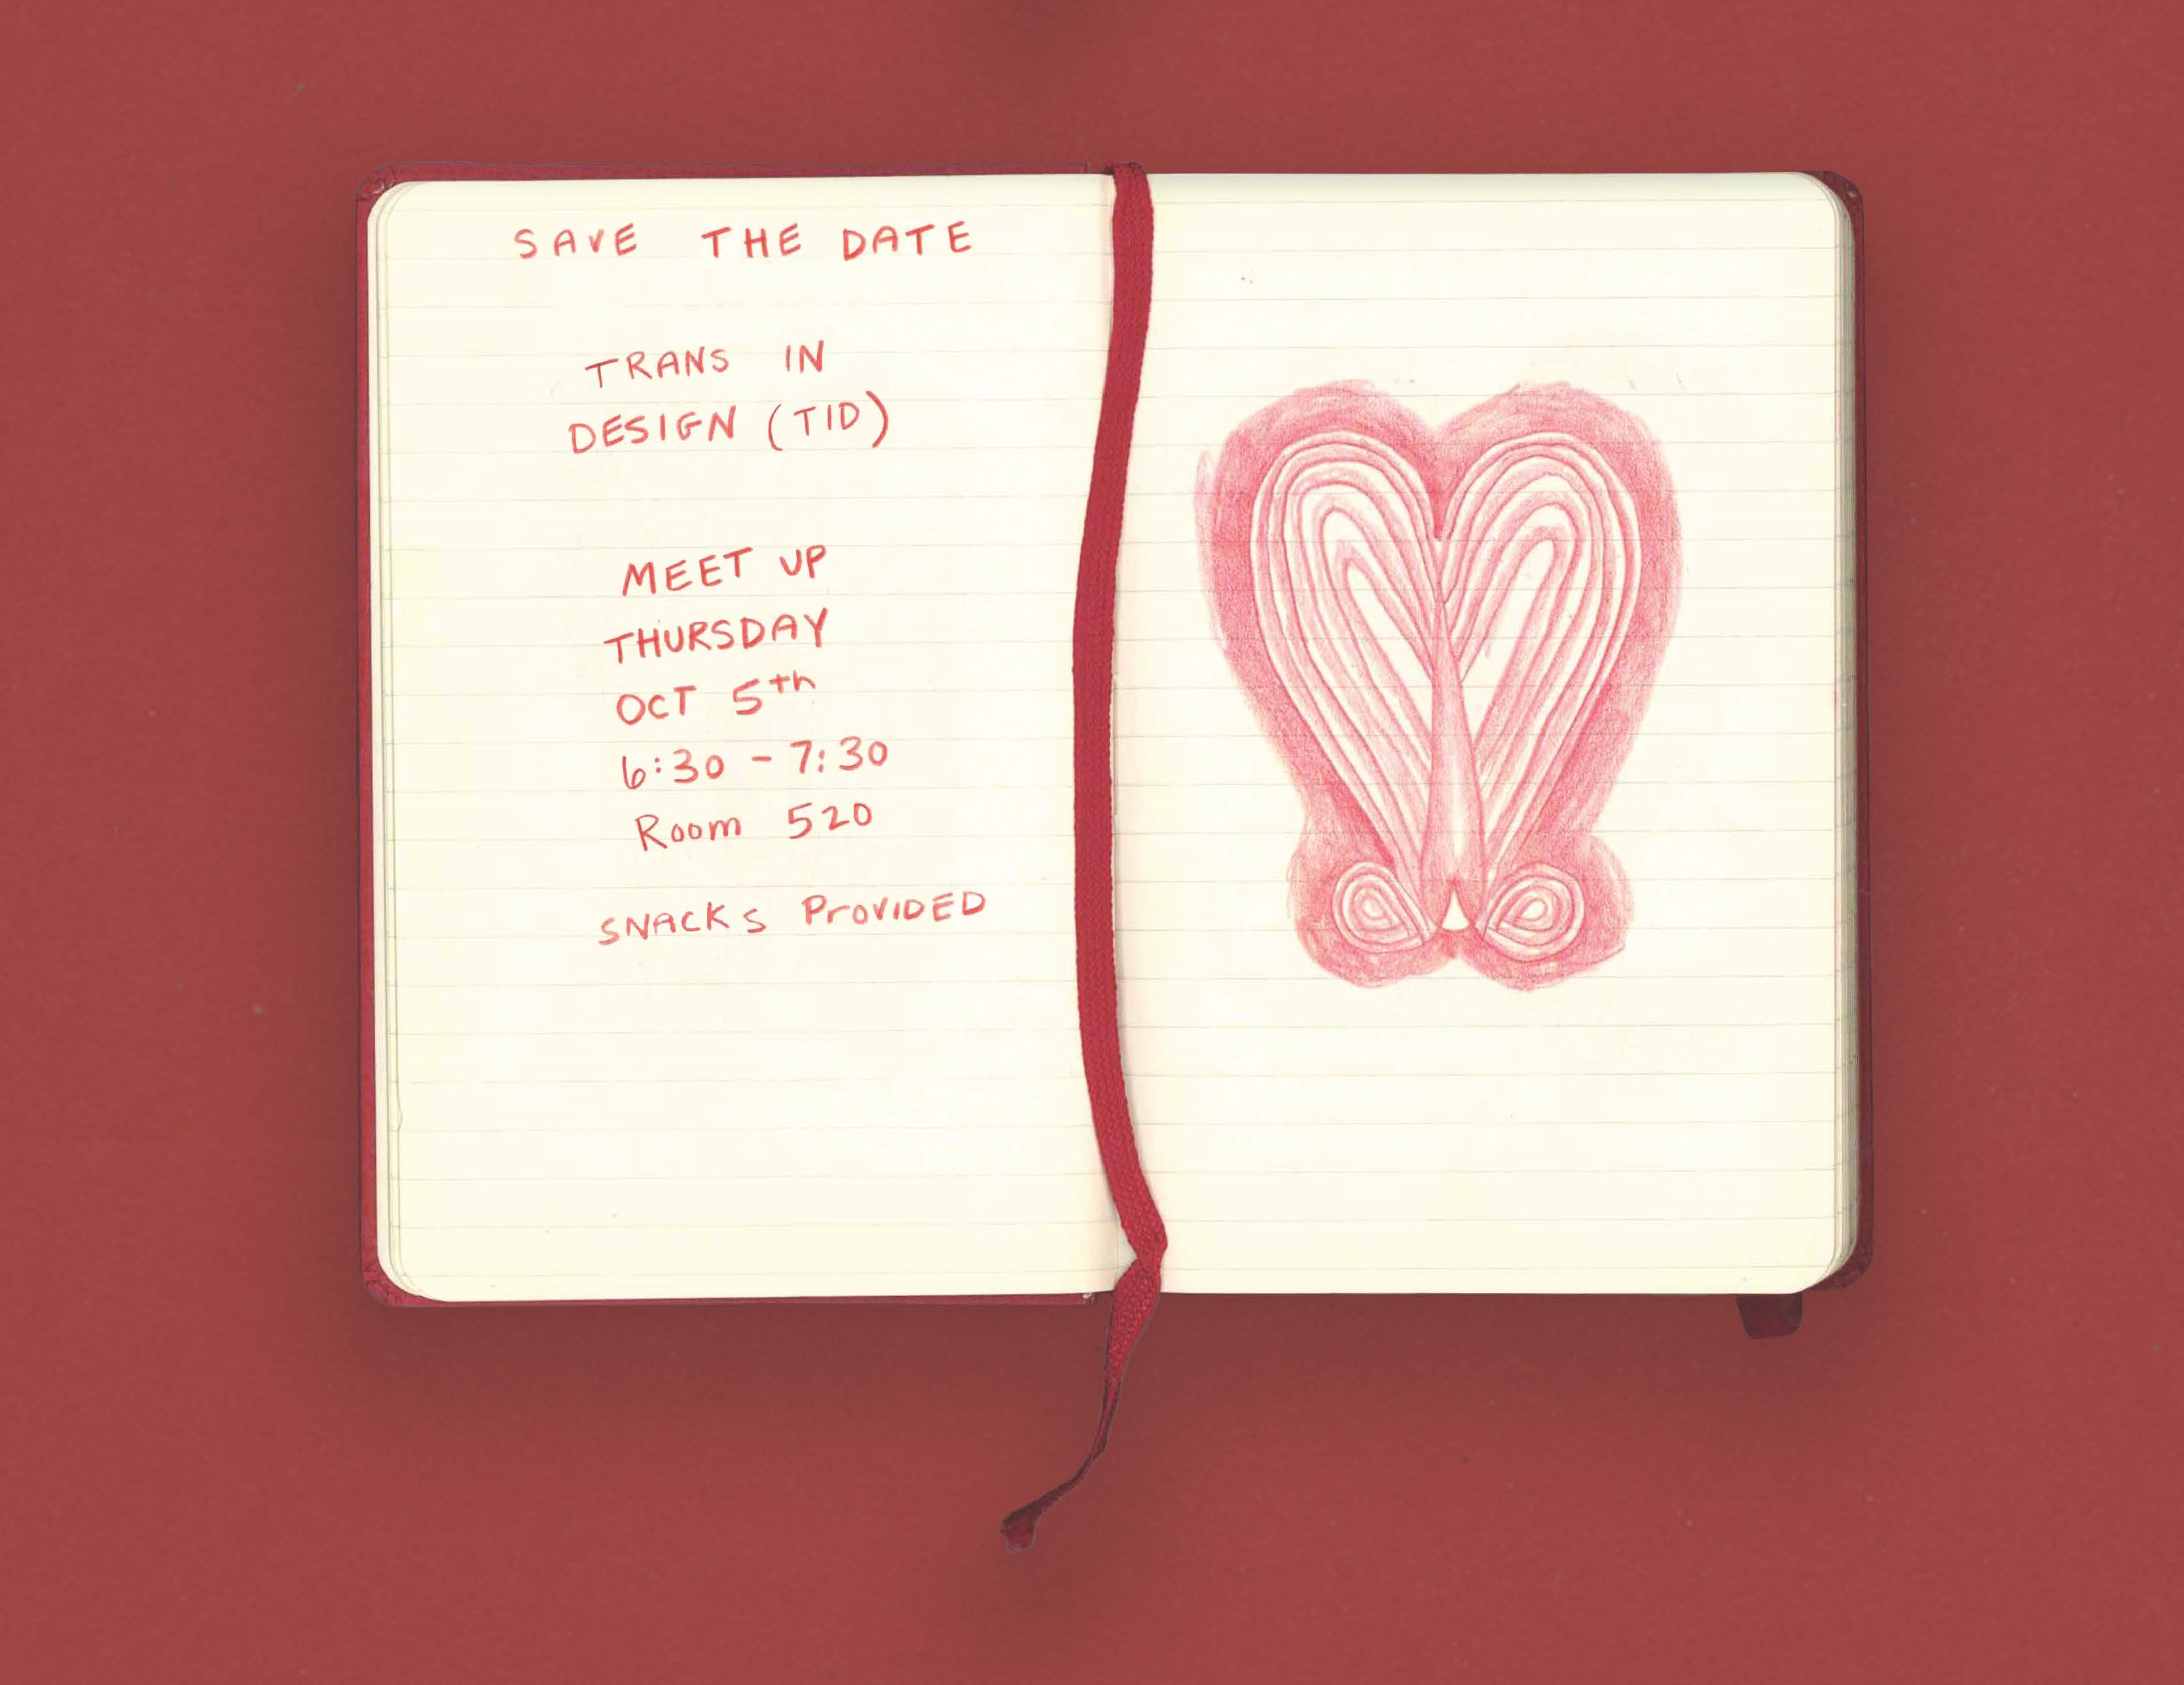 SAVE THE DATE
TRANS IN
DESIGN (TID)
MEET UP
THURSDAY
OCT 5th
6:30 - 7:30
Room 520
SNACKS PROVIDED